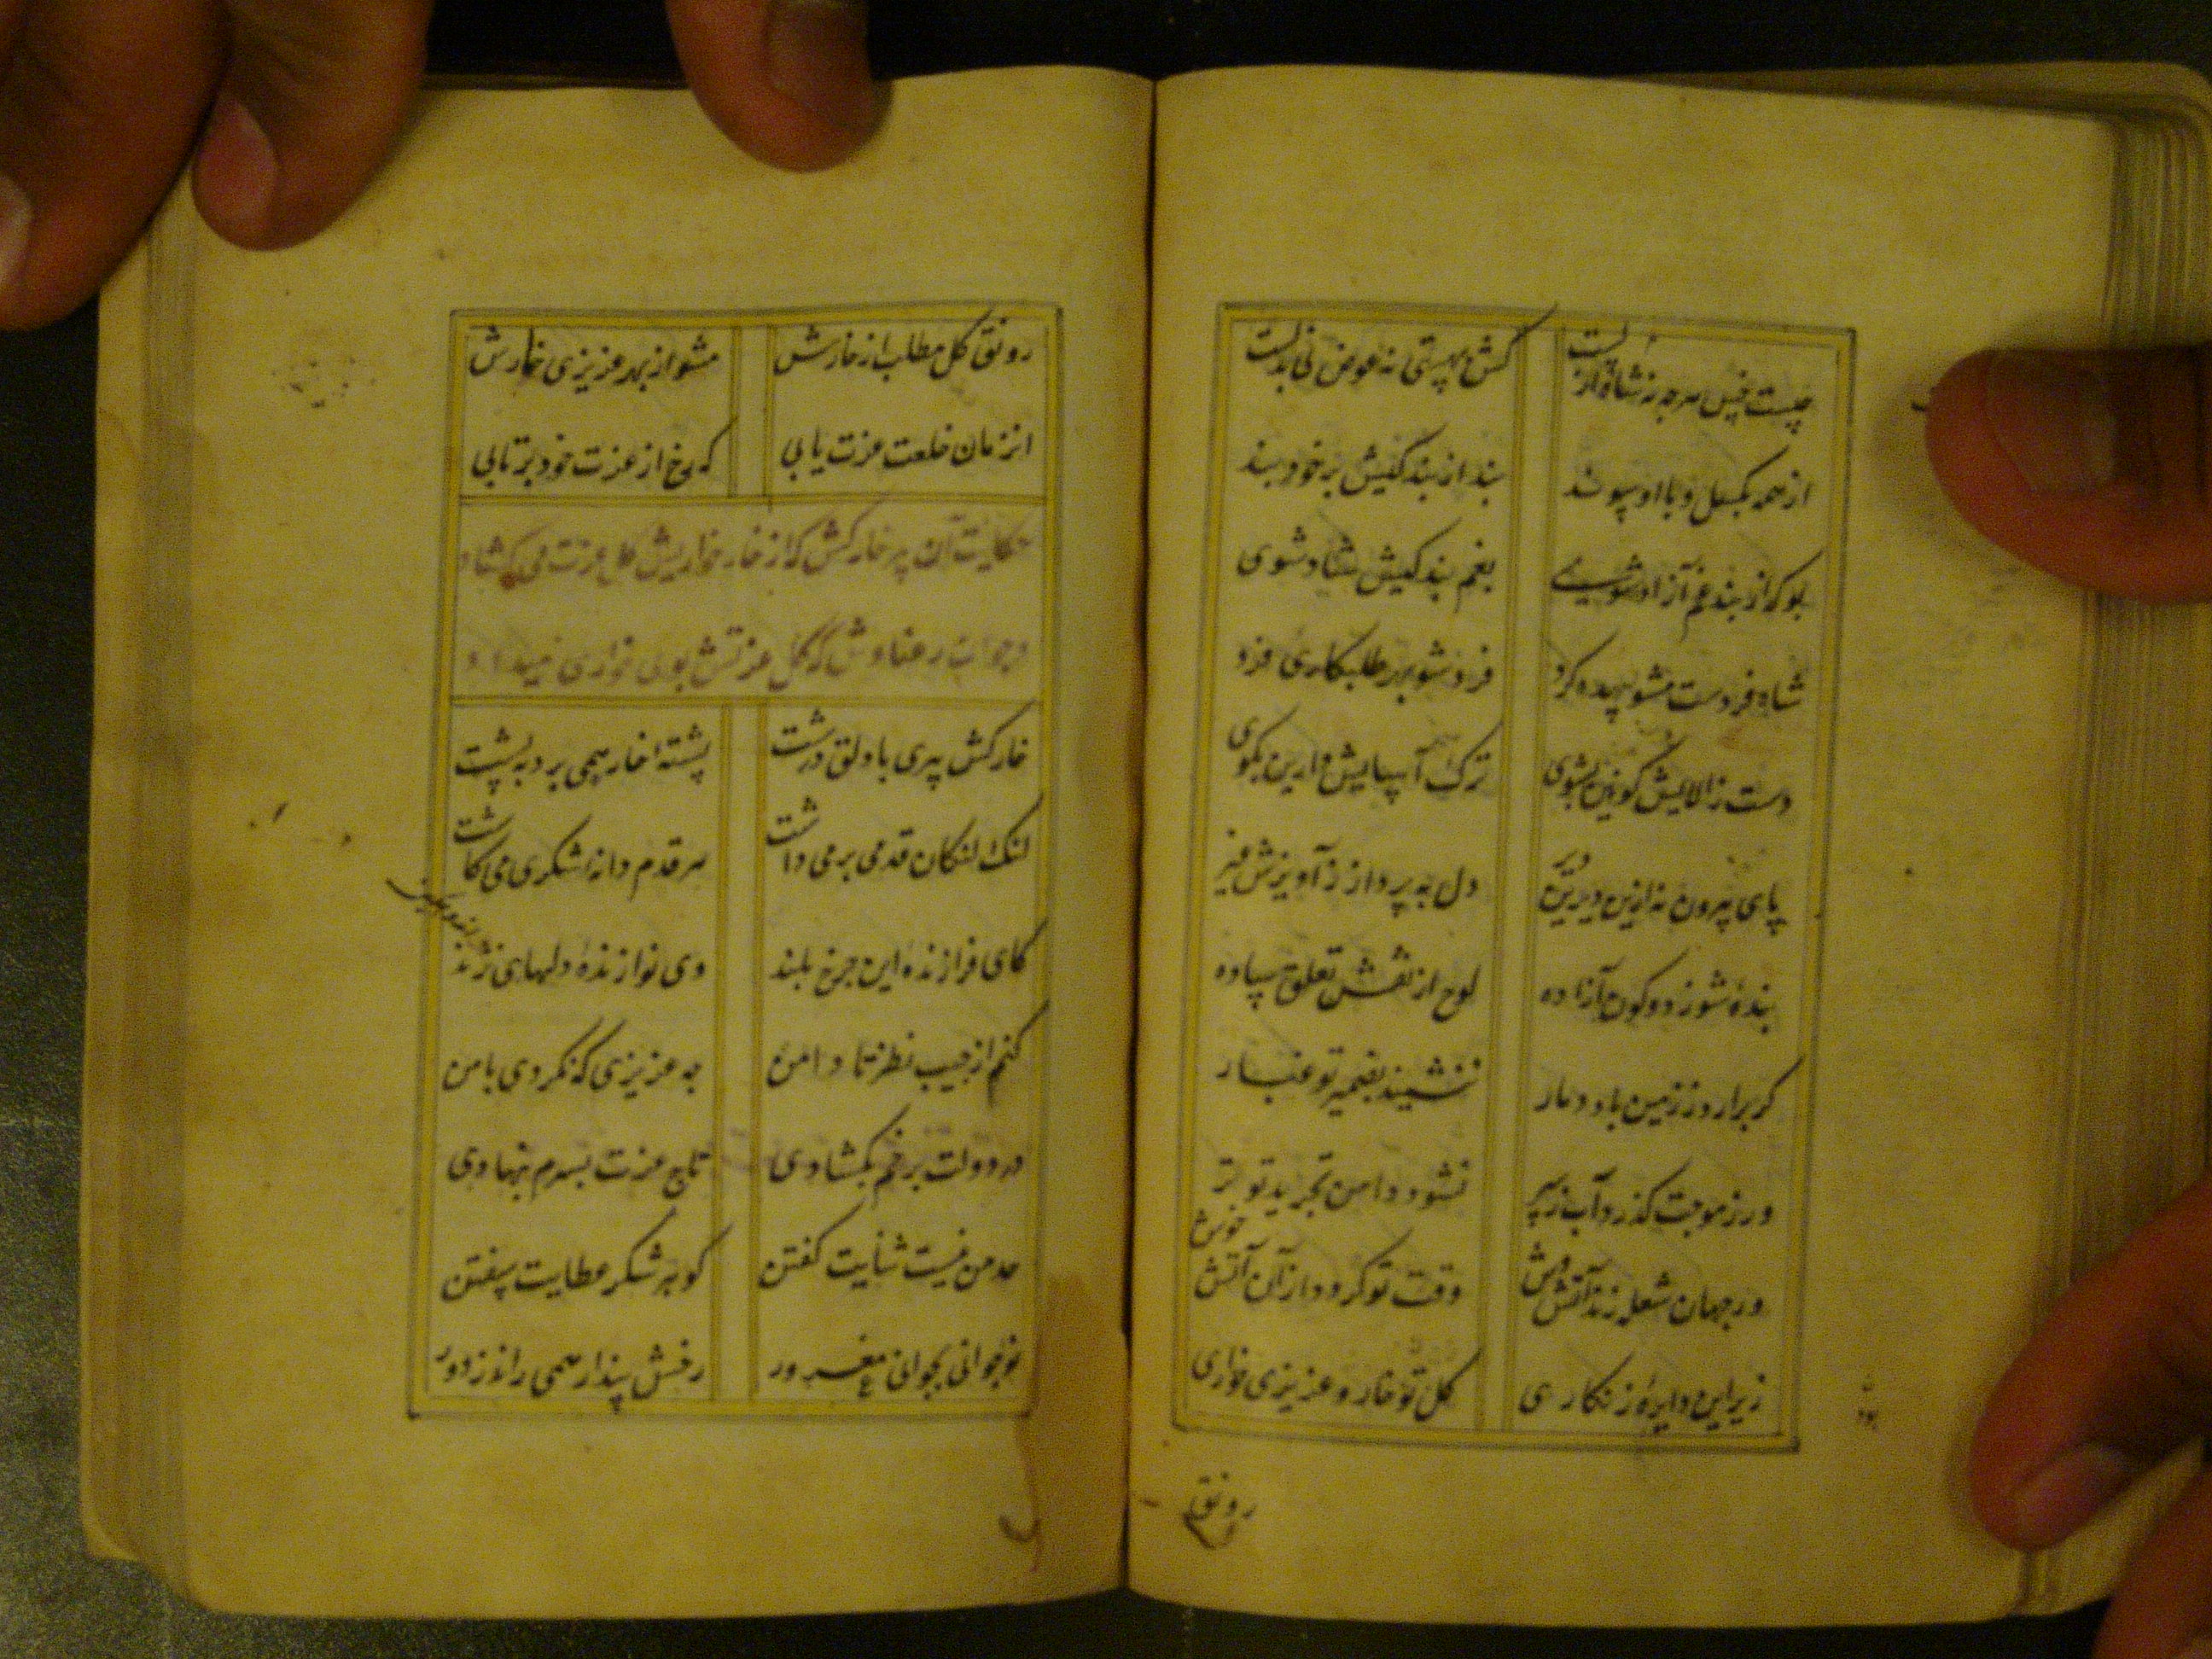 چیست فیض هر چه نه شاه ازلست
کش بهستی نه عوض نی بدلست
از همه بکسل و با او پیوند
بند از بند کیش بر خود بند
بو که از بند غم آزاد شوی
بغم بند کیش شاد شوی
شاه فردست مشو بیهده کرد
فرد شو بهر طلبکاری فرد
دست ز الایش کونین بشوی
ترک آسایش دارین بکوی
پای بیرون نه ازین دیرین دیر
دل به پرداز ز آویزش غیر
بندهٔ شو ز دو کون آزاده
لوح از نقش تعلق ساده
کر برارد ز زمین باد دمار
ننشیند بضمیر تو غبار
ور ز موجت کذرد آب ز سر
نشود دامن تجرید تو تر
ور جهان شعله زند آتش وش
وقت تو کردد از آن آتش خوش
زیر این دایرهٔ زنکاری
کل تو خار و عزیزی خواری
رونق
رونق کل مطلب از خارش
مشو از بهر عزیزی خوارش
انزمان خلعت عزت یابی
که رخ از عزت خود برتابی
حکایت آن پیر خارکش که از خار خواریش کل عزت می کشاد
و جوان رعناوش که کل عزتش بوی خواری میداد
خارکش پیری با دلق درشت
پشتهٔ خار همی برد به پشت
لنک لنکان قدمی برمی داشت
هر قدم دانهٔ شکری می کاشت
کای فرازنده این چرخ بلند
وی نوازندهٔ دلهای نژند
کنم از جیب نظر تا دامن
چه عزیزی که نکردی با من
در دولت برخم بکشادی
تاج عزت بسرم بنهادی
حد من نیست ثنایت کفتن
کوهر شکر عطایت سفتن
نوجوانی بجوانی مغرور
رخش پندار همی راند ز دور